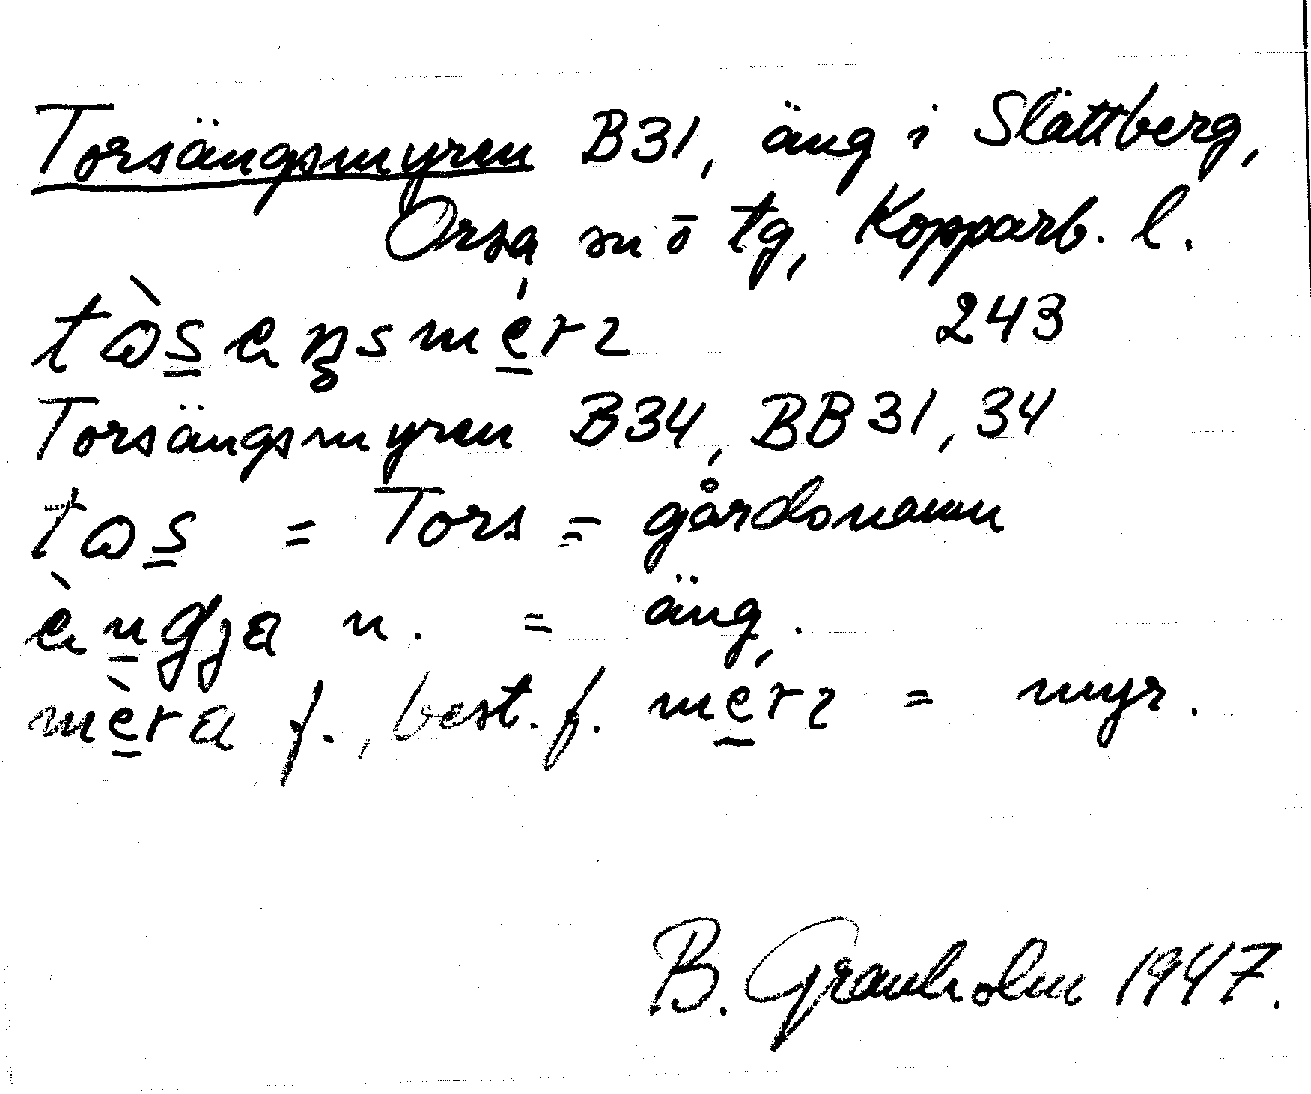 Torsängsmyren B31, äng i Slättberg,
Orsa sn o tg, Kopparb. l.
243
Torsängsmyren B34, BB31, 34
= Tors = gårdsnamn
n. = äng.
f., best. f. = myr.
B. Granholm 1947.